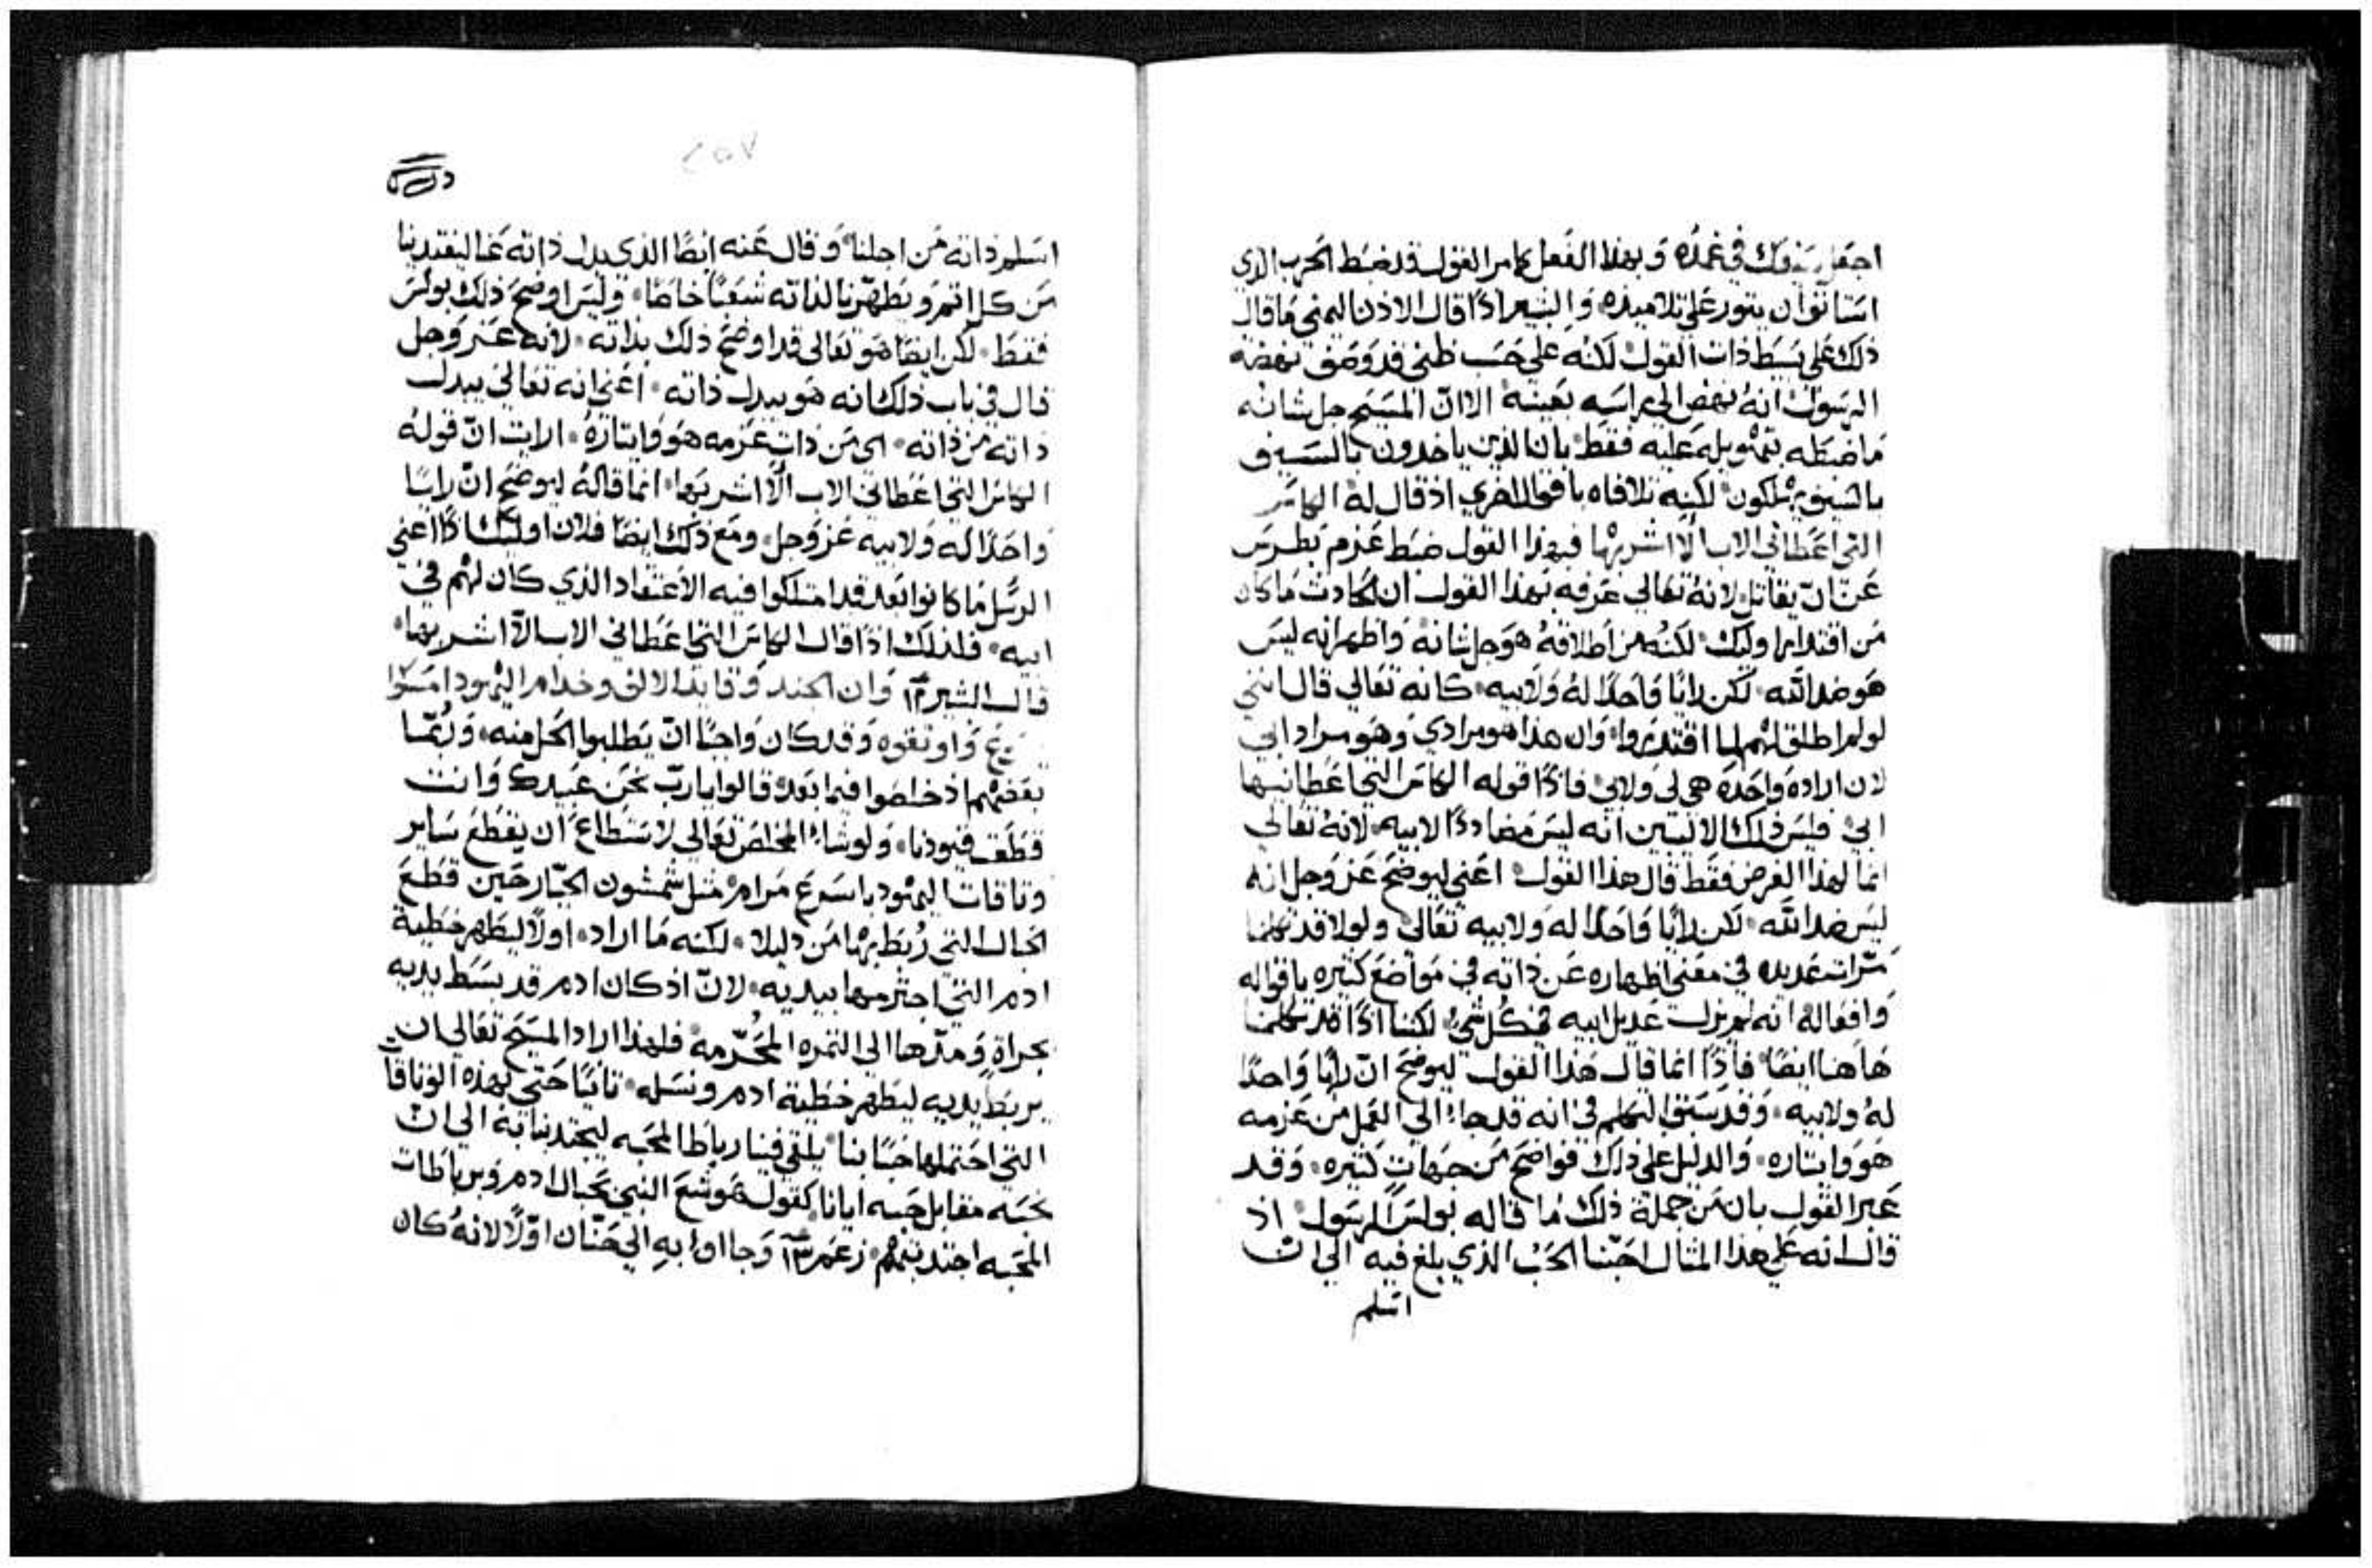 اجعل سيفك في غمده وبهذا الفعل كامر القول قد ضبط الحرب الذي
استانف ان يتور علي تلاميذه والبشير اذًا قال الاذن اليمني ما قال
ذلك علي بسيط ذات القول لكنه علي حسب ظني قد وصف نهضة
الرسول انه نهض الي راسه بعينه الا ان المسيح جل شانه
ما ضبطه بتهويله عليه فقط بان الذين ياخدون بالسيف
بالسيف يهلكون لكنه تلافاه باقوال اخري اذ قال له الكاس
التي اعطاني الاب ألا اشربها فبهذا القول ضبط عزم بطرس
عن ان يقاتل لانه تعالي عرفه بهذا القول ان الحادث ما كان
من اقتدار اوليك لكنه من اطلاقه هو جل شانه واظهر انه ليس
هو ضد الله لكن رايًا واحدًا له ولابيه كانه تعالي قال انني
لو لم اطلق لهم لما اقتدروا وان هذا هو مرادي وهو مراد ابي
لان اراده واحده هي لي ولابي فاذًا قوله الكاس التي اعطانيها
ابي فليس ذلك الا لتبين انه ليس مضاددًا لابيه لانه تعالي
انما لهذا الغرض فقط قال هذا القول اعني ليوضح عز وجل انه
ليس ضد الله لكن رايًا واحدًا له ولابيه تعالي ولولا قد تكلمنا
مرات عديده في معني اظهاره عن ذاته في مواضع كثيره باقواله
وافعاله انه لم يزل عديل ابيه في كل شي لكننا اذًا قد تكلمنا
هاهنا ايضًا فاذًا انما قال هذا القول ليوضح ان رايًا واحدًا
له ولابيه وقد سبق التكلم في انه قد جاء الي العمل من عزمه
هو وايتاره والدليل علي ذلك فواضح من جهات كثيره وقد
عبر القول بان من جملة ذلك ما قاله بولس الرسول اذ
قال انه علي هذا المثال احبنا الحب الذي بلغ فيه الي ان
اسلم
اسلم ذاته من اجلنا وقال عنه ايضًا الذي بدل ذاته عنا ليفتدينا
من كل اتم ويطهرنا لذاته شعبًا خاصًا وليس اوضح ذلك بولس
فقط لكن ايضًا هو تعالي قد اوضح ذلك بذاته لانه عز وجل
قال في باب ذلك انه هو يبدل ذاته اعني انه تعالي يبدل
ذاته من ذاته اي من ذات عزمه هو وايتاره ارايت ان قوله
الكاس التي اعطاني الاب ألا اشربها انما قاله ليوضح ان رايًا
واحدًا له ولابيه عز وجل ومع ذلك ايضًا فلان اوليك اذًا اعني
الرسل ما كانوا بعد قد امتلكوا فيه الاعتقاد الذي كان لهم في
ابيه فلذلك اذًا قال الكاس التي اعطاني الاب ألا اشربها
قال البشير ١٢ وان الجند وقايد الالف وخدام اليهود امسكوا
واوثقوه وقد كان واجبًا ان يطلبوا الحل منه وربما
بعضهم اذ خلصوا فيما بعد قالوا يا رب نحن عبيدك وانت
قطعت قيودنا ولو شاء المخلص تعالي لاستطاع ان يقطع ساير
وثاقات اليهود باسرع مرام مثل شمشون الجبار حين قطع
الحبال التي ربط بها من دليلا لكنه ما اراد اولًا ليظهر خطية
ادم التي اجترمها بيديه لان اذ كان ادم قد بسط يديه
بجراة ومدها الي الثمره المحرمه فلهذا اراد المسيح تعالي ان
يربط يديه ليظهر خطية ادم ونسله ثانيًا حتي بهذه الوثاقات
التي احتملها حبًا بنا يلقي فينا رباطًا لمحبه ليجتدبنا به الي ان
نحبه مقابل حبه ايانا كقول هوشع النبي بحبال ادم وبرباطات
المحبه اجتدبتهم زعم ١٣ وجااوا به الي حنان اولًا لانه كان